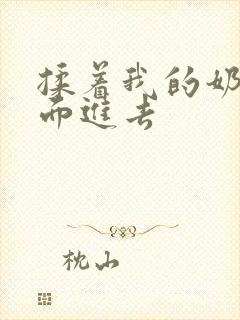 揉着我的奶
而進去
枕山